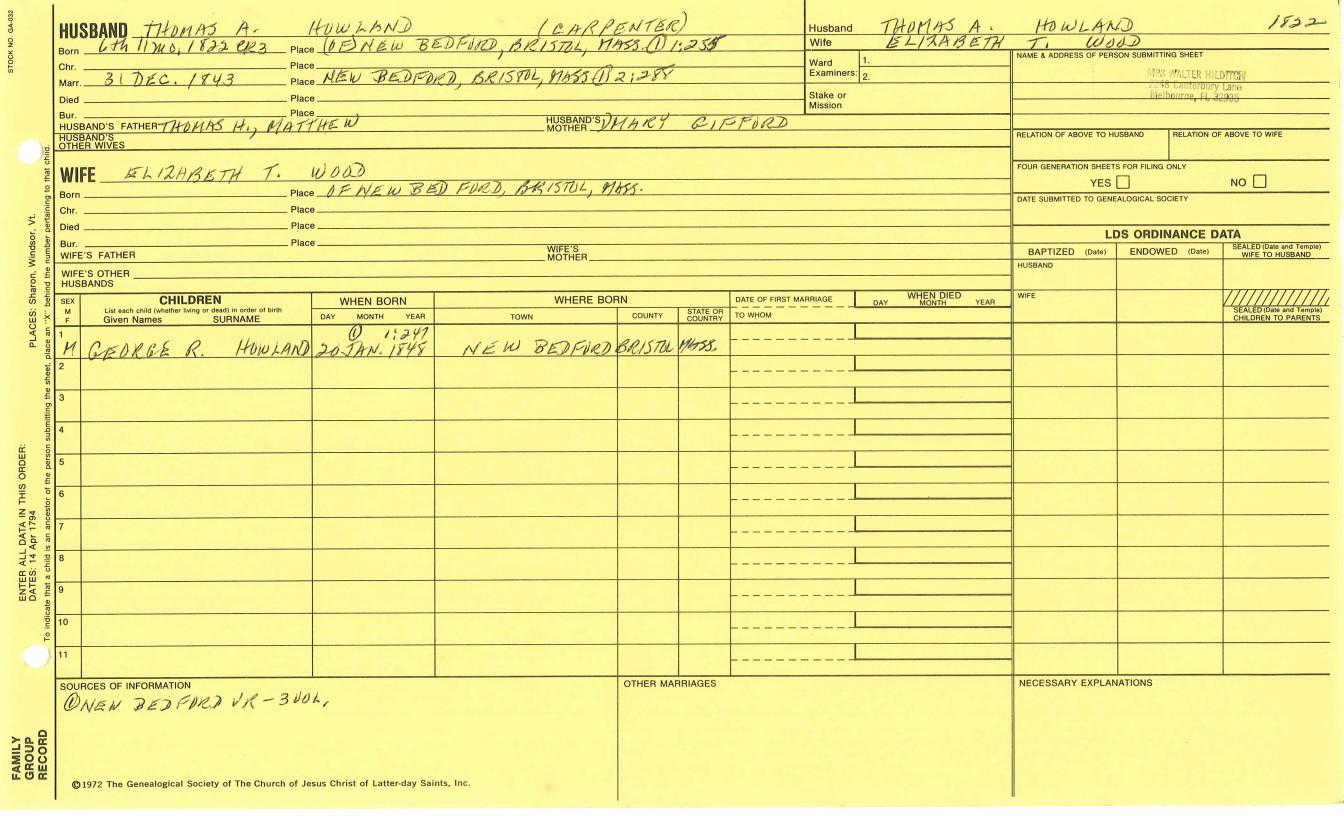 STOCK NO. GA-032
HUSBAND THOMAS A. HOWLAND (CARPENTER)
Born 6th 11mo, 1822 CR3 Place (OF) NEW BEDFORD, BRISTOL, MASS. ① 1:255
Chr. Place
Marr. 31 DEC. 1843 Place NEW BEDFORD, BRISTOL, MASS ① 2:288
Died Place
Bur. Place
HUSBAND'S FATHER THOMAS H., MATTHEW HUSBAND'S MOTHER MARY GIFFORD
HUSBAND'S OTHER WIVES
Husband THOMAS A. HOWLAND 1822
Wife ELIZABETH T. WOOD
Ward Examiners: 1.
2.
Stake or Mission
NAME & ADDRESS OF PERSON SUBMITTING SHEET
MRS WALTER
Canterbury Lane
Melbourne, FL
RELATION OF ABOVE TO HUSBAND RELATION OF ABOVE TO WIFE
FOUR GENERATION SHEETS FOR FILING ONLY
YES NO
DATE SUBMITTED TO GENEALOGICAL SOCIETY
WIFE ELIZABETH T. WOOD
Born Place OF NEW BEDFORD, BRISTOL, MASS.
Chr. Place
Died Place
Bur. Place
WIFE'S FATHER WIFE'S MOTHER
WIFE'S OTHER HUSBANDS
LDS ORDINANCE DATA
BAPTIZED (Date) ENDOWED (Date) SEALED (Date and Temple) WIFE TO HUSBAND
HUSBAND
WIFE
SEALED (Date and Temple) CHILDREN TO PARENTS
SEX M F
CHILDREN
List each child (whether living or dead) in order of birth
Given Names SURNAME
WHEN BORN
DAY MONTH YEAR
WHERE BORN
TOWN COUNTY STATE OR COUNTRY
DATE OF FIRST MARRIAGE
TO WHOM
WHEN DIED
DAY MONTH YEAR
1 ① 1:247
M GEORGE R. HOWLAND 20 JAN. 1848 NEW BEDFORD BRISTOL MASS.
2
3
4
5
6
7
8
9
10
11
SOURCES OF INFORMATION
① NEW BEDFORD VR - 3 VOL.
OTHER MARRIAGES
NECESSARY EXPLANATIONS
©1972 The Genealogical Society of The Church of Jesus Christ of Latter-day Saints, Inc.
ENTER ALL DATA IN THIS ORDER:
DATES: 14 Apr 1794 PLACES: Sharon, Windsor, Vt.
To indicate that a child is an ancestor of the person submitting the sheet, place an "X" behind the number pertaining to that child.
FAMILY
GROUP
RECORD